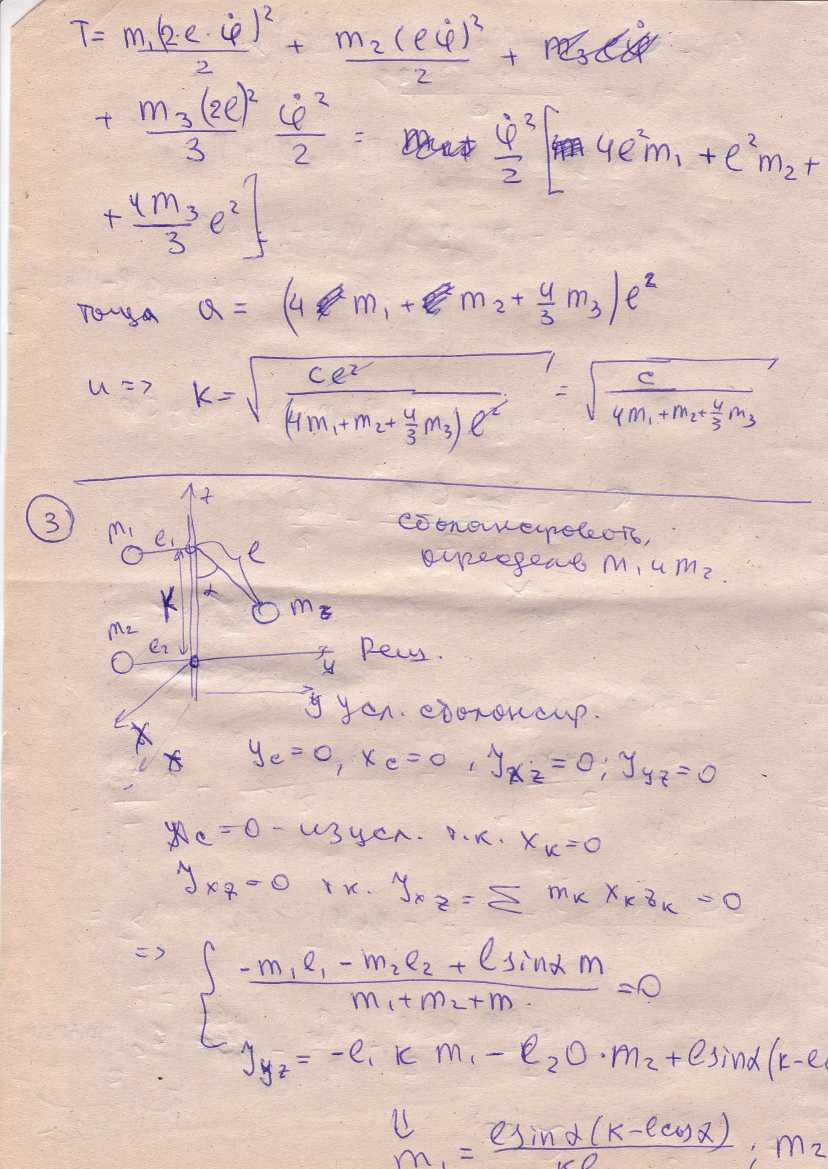 T = m₁(2·e·φ̇)²/2 + m₂(eφ̇)²/2 +
+ m₃(2e)²/3 φ̇²/2 = φ̇²/2 [4e²m₁ + e²m₂ +
+ 4m₃/3 e²]
тогда a = (4 m₁ + m₂ + 4/3 m₃) e²
и => K = √(ce²/((4m₁+m₂+4/3 m₃)e²)) = √(c/(4m₁+m₂+4/3 m₃))
3
z
m₁ e₁ e
α
K
m
m₂ e₂
y
x
сбалансировать,
определив m₁ и m₂.
Реш.
y усл. сбалансир.
y_c = 0, x_c = 0, J_xz = 0; J_yz = 0
x_c = 0 - из усл. т.к. x_к = 0
J_xz = 0 т.к. J_xz = Σ m_к x_к z_к = 0
=> { (-m₁e₁ - m₂e₂ + e sinα m)/(m₁+m₂+m) = 0
J_yz = -e₁ к m₁ - e₂0·m₂ + e sinα(к-e
⇓
m₁ = e sinα(к-e cosα)/кe ; m₂